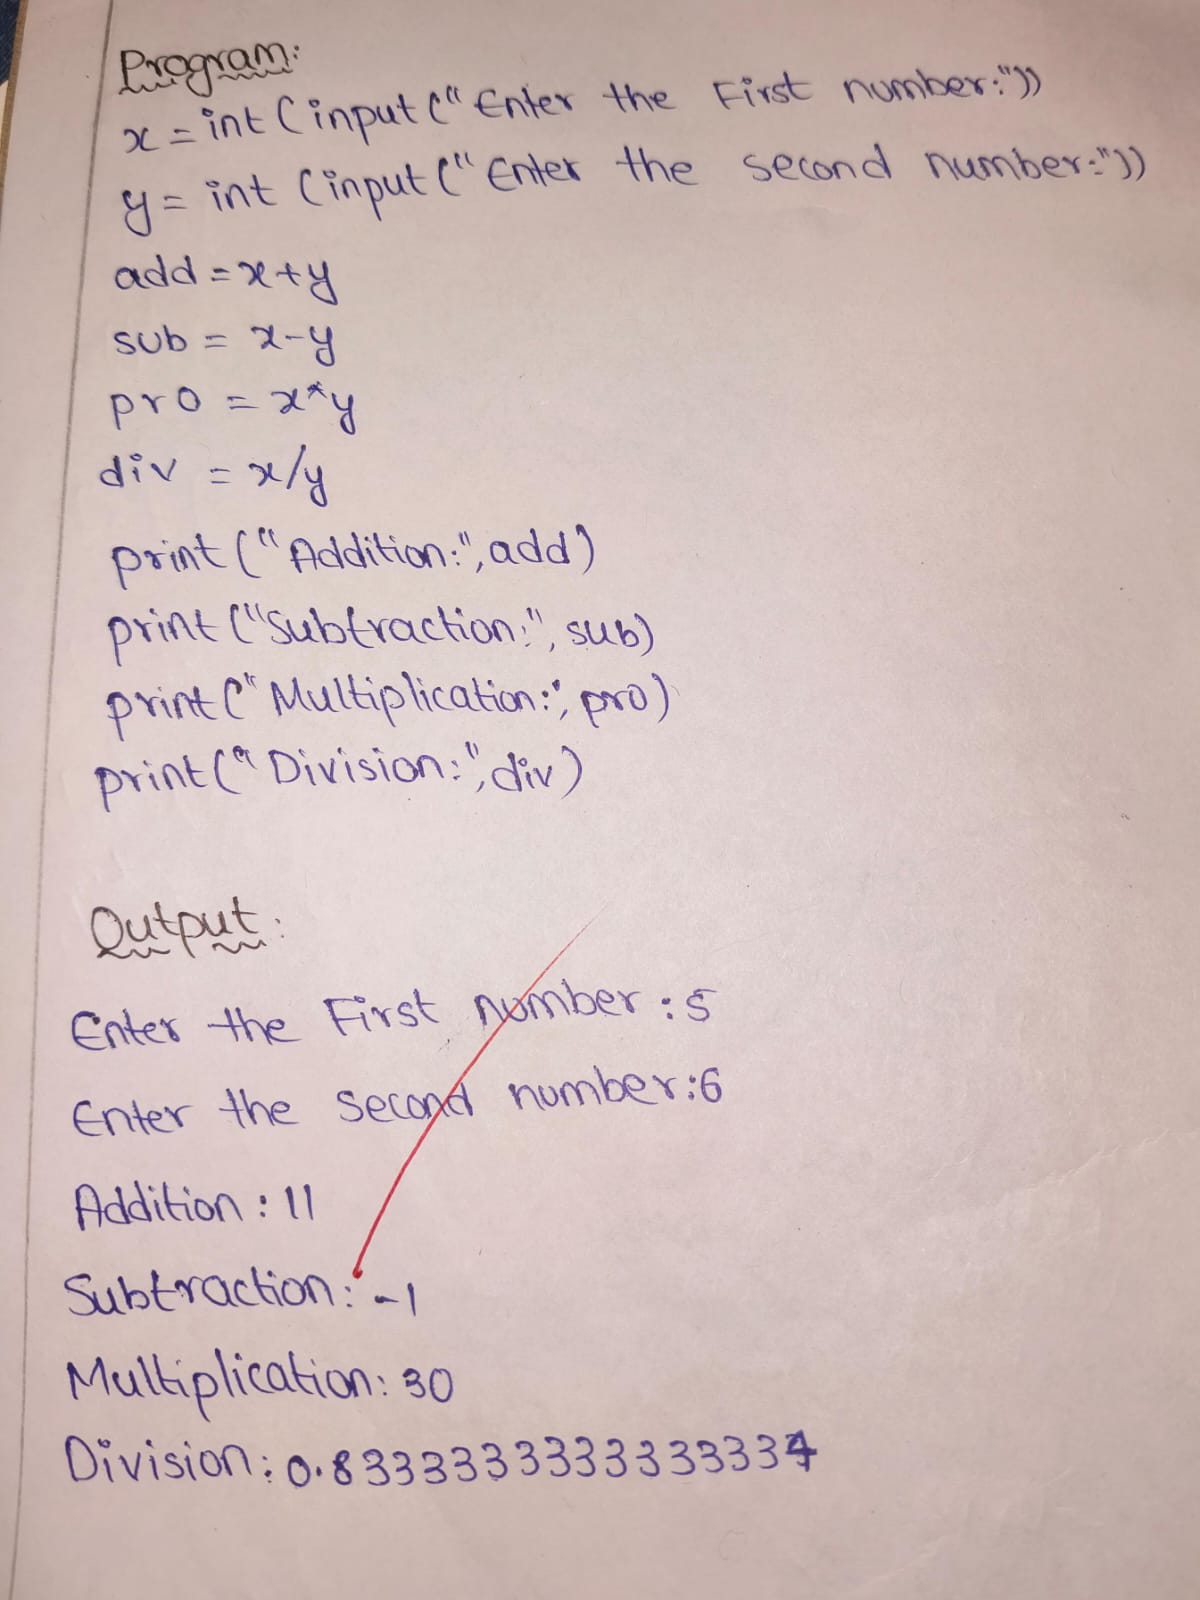 Program:
x = int (input ("Enter the First number:"))
y = int (input ("Enter the second number:"))
add = x+y
sub = x-y
pro = x*y
div = x/y
print ("Addition:", add)
print ("Subtraction:", sub)
print ("Multiplication:", pro)
print ("Division:", div)
Output:
Enter the First number : 5
Enter the second number : 6
Addition : 11
Subtraction: -1
Multiplication: 30
Division: 0.8333333333333334